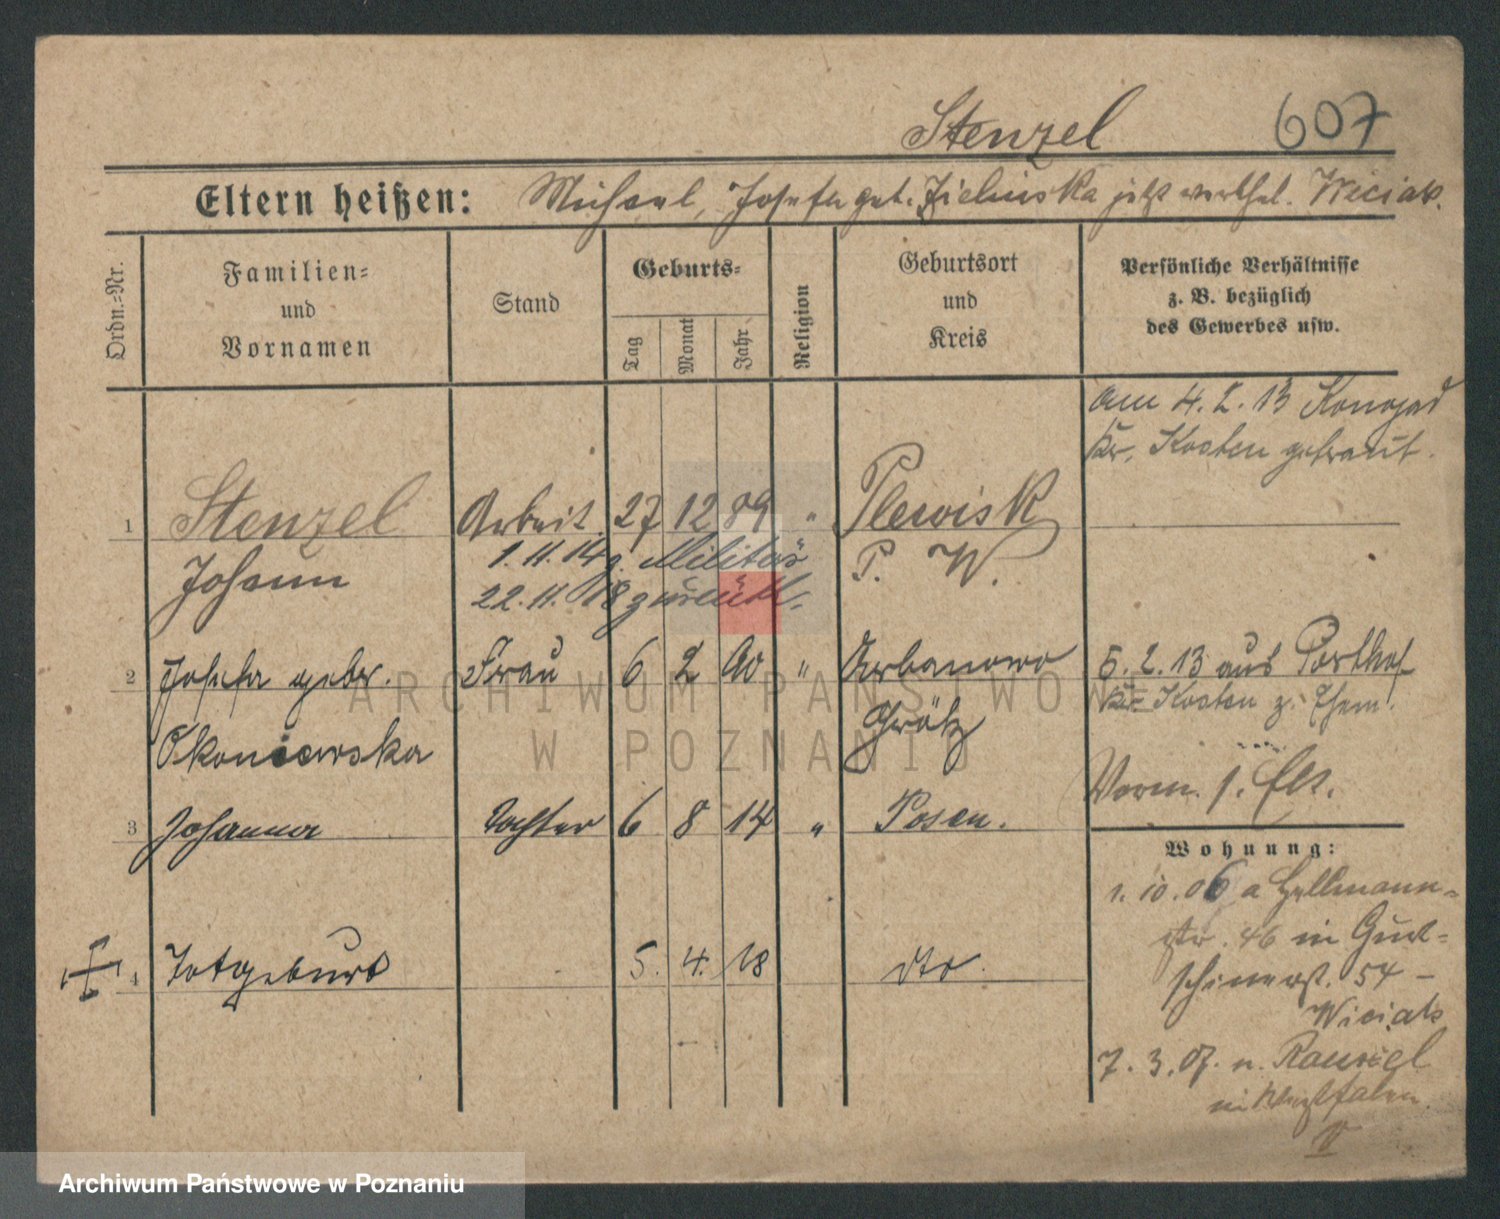 Stenzel 607
Eltern heißen: Michael, Josefa geb. Zielinska jetzt verehel. Wiciak.
Ordn.=Nr.
Familien=
und
Vornamen
Stand
Geburts=
Tag
Monat
Jahr
Religion
Geburtsort
und
Kreis
Persönliche Verhältnisse
z. B. bezüglich
des Gewerbes usw.
am 4. 2. 13 Konojad
Kr. Kosten getraut.
1 Stenzel Arbeit. 27 12 89 " Plewisk
Johann 1. 11. 14 z. Militär P. W.
22. 11. 18 zurück.
2 Josefa gebr. Frau 6 2 90 " Urbanowo 5. 2. 13 aus
Kr. Kosten z. Ehem.
Okoniewska Grätz
Vorm. s. Elt.
3 Johanna Tochter 6 8 14 " Posen.
Wohnung:
1. 10. 06 a Hellmann=
str. 46 in Gurt=
schinerst. 54 –
Wiciak
4 Totgeburt 5. 4. 18 dto.
7. 3. 07. n. Rauxel
in Westfalen.
ARCHIWUM PAŃSTWOWE
W POZNANIU
Archiwum Państwowe w Poznaniu